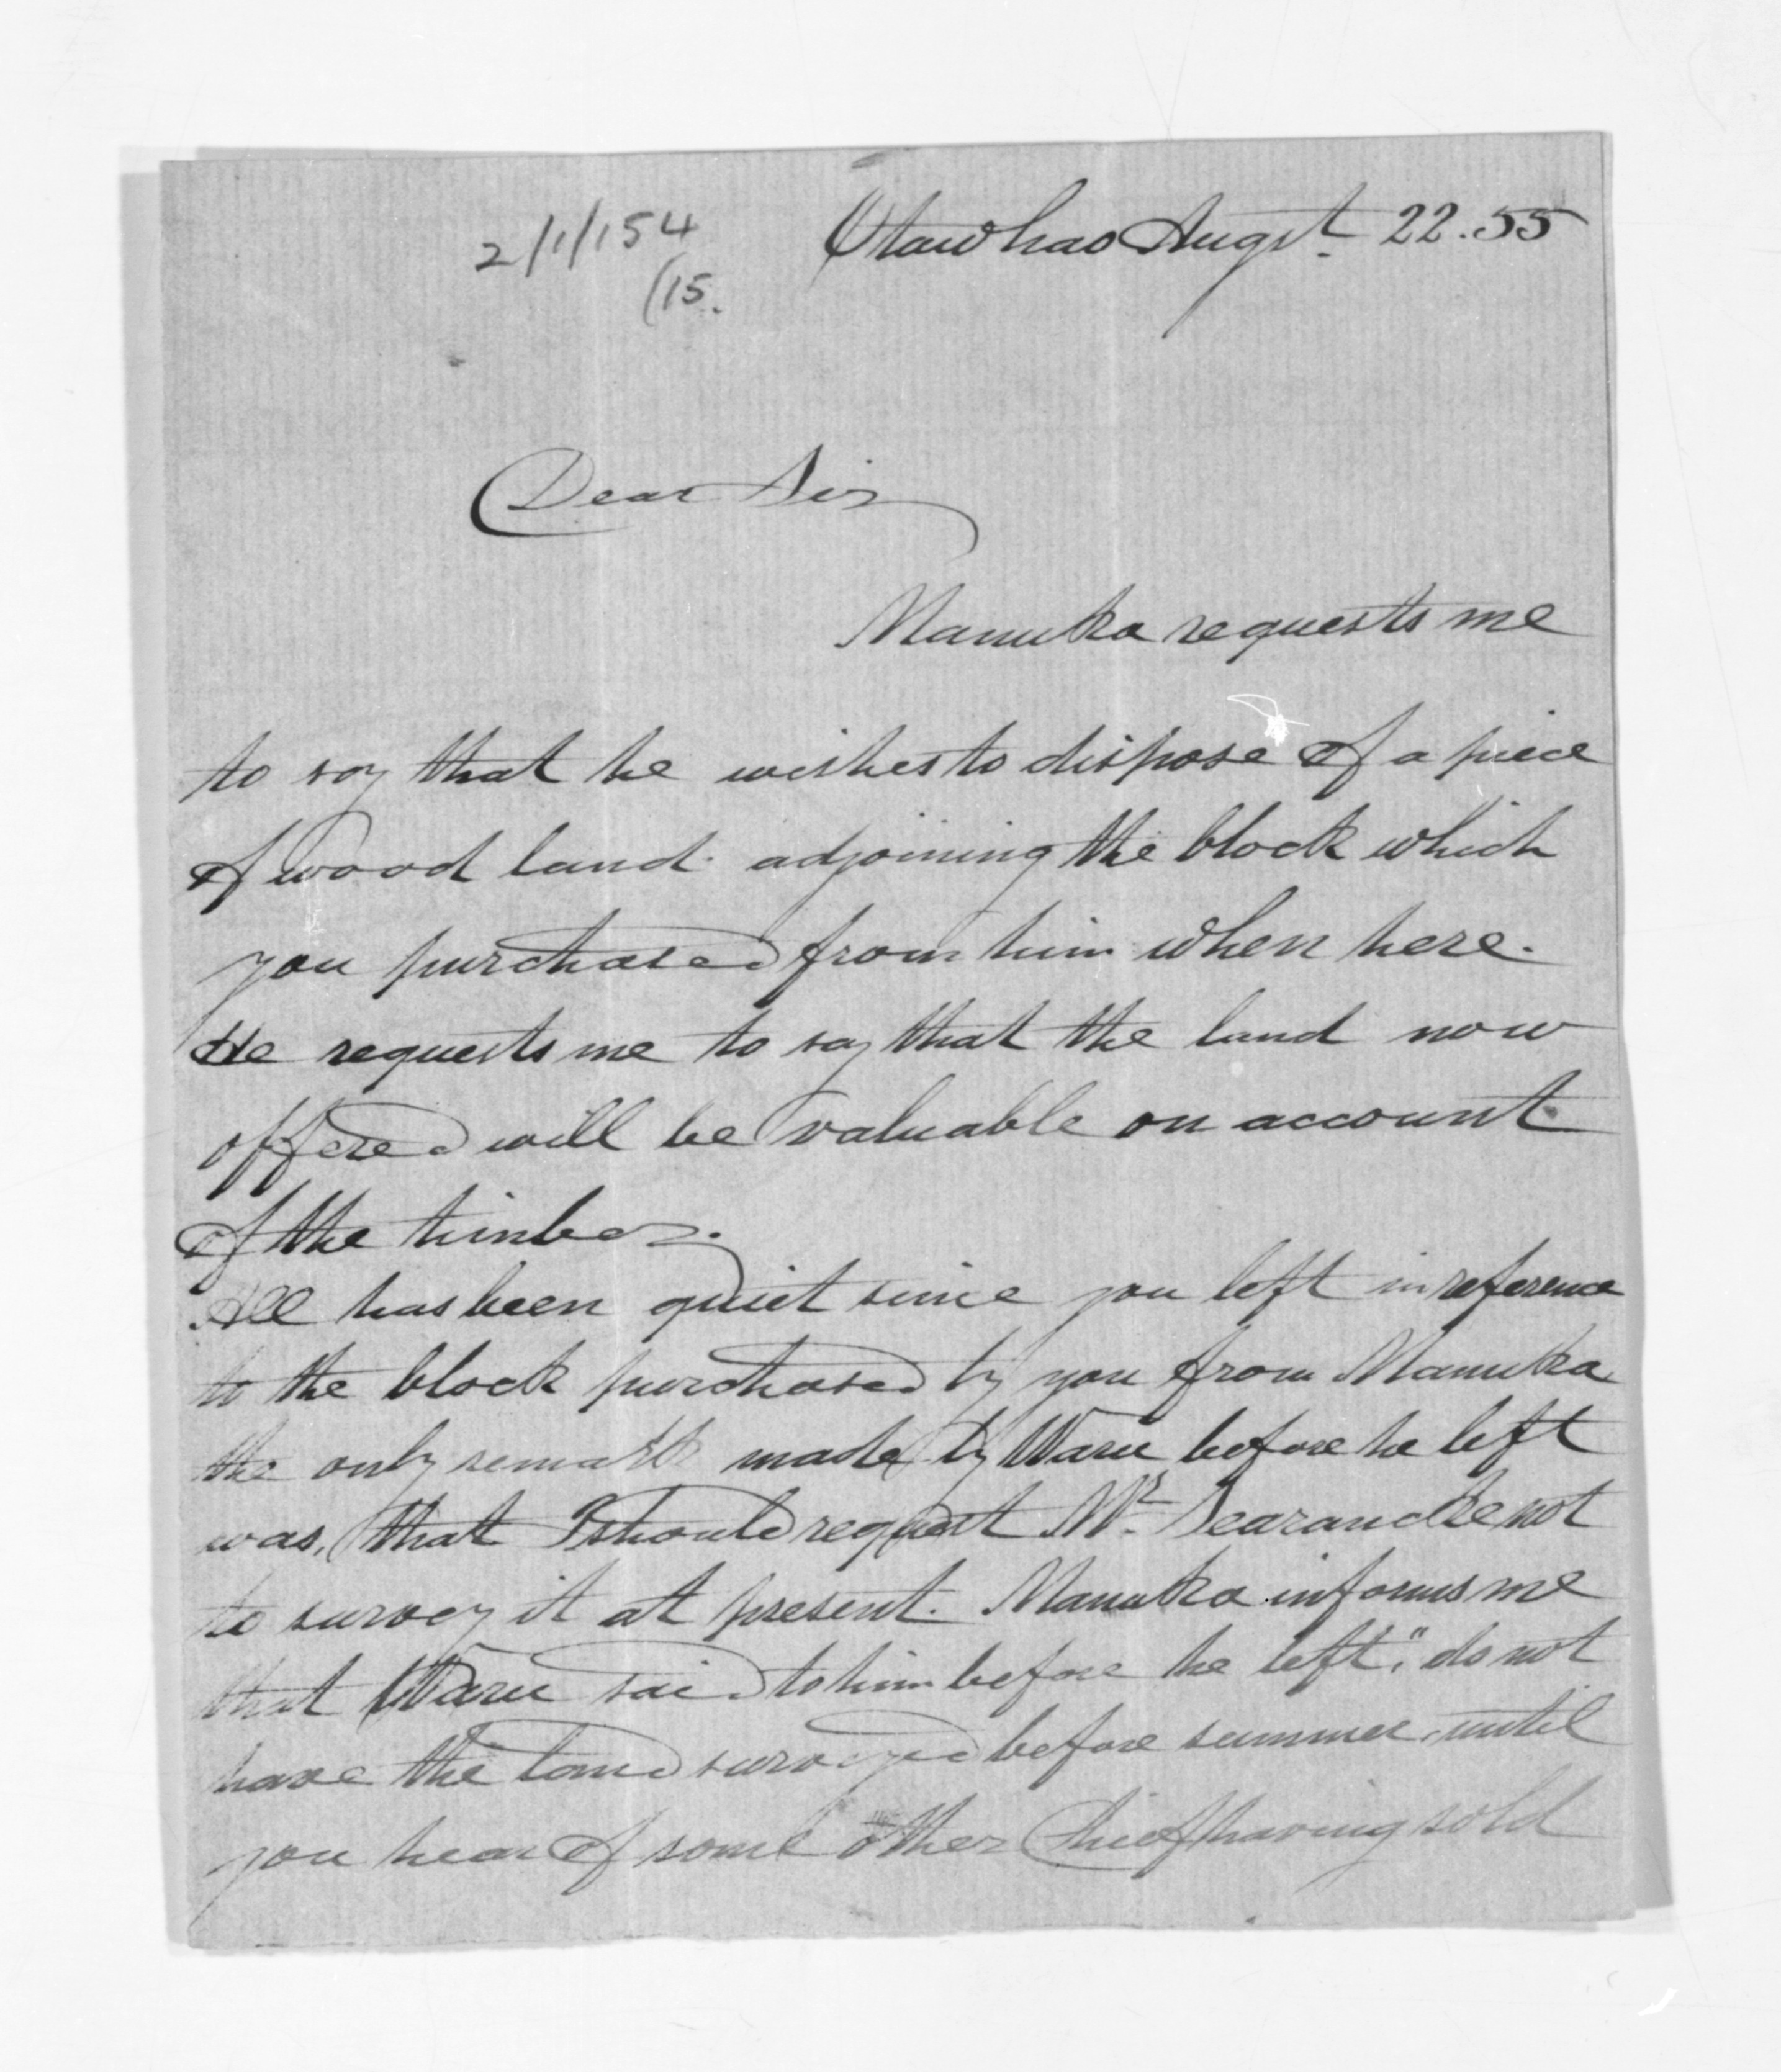 2/1/154
(15.
Otawhao Augst. 22.55
Dear Sir
Manuka requests me
to say that he wishes to dispose of a piece
of wood land adjoining the block which
you purchased from him when here.
He requests me to say that the land now
offered will be valuable on account
of the timber.
All has been quiet since you left in reference
to the block purchased by you from Manuka
the only remark made by Waru before he left
was, that I should request Mr. Searancke not
to survey it at present. Manuka informs me
that Waru said to him before he left, "do not
have the land surveyed before summer, until
you hear of some other Chief having sold